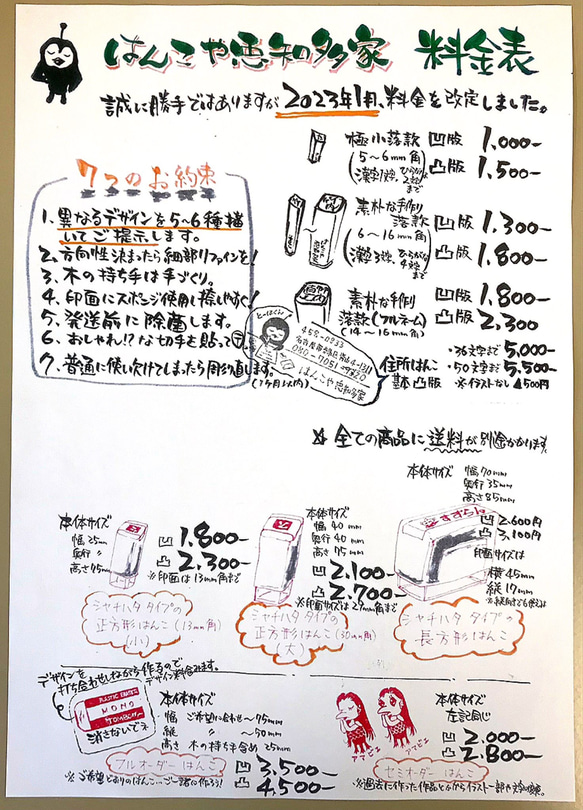 はんこや恵知多家 料金表
誠に勝手ではありますが2023年1月、料金を改定しました。
極小落款 凹版 1.000-
(5～6mm角 凸版 1.500-
漢字1文字、ひらがな2文字まで)
7つのお約束
1. 異なるデザインを5～6種描
いてご提示します。
2. 方向性決まったら細部リファインを!
3. 木の持ち手は手づくり。
4. 印面にスポンジ使用し捺しやすく!
5. 発送前に除菌します。
6. おしゃれ!?な切手を貼って〒
7. 普通に使い欠けてしまったら彫り直します。
(1ヶ月以内)
素朴な手作り
落款 凹版 1.300-
(6～16mm角 凸版 1.800-
漢字3文字、ひらがな4文字まで)
素朴な手作り 凹版 1.800-
落款(フルネーム) 凸版 2,300
(14～16mm角)
とーはくん
458-0933
はんこや恵知多家
住所はんこ
基本凸版
・36文字まで 5,000-
・50文字まで 5,500-
※イラストなし 4500円
全ての商品に送料が別途かかります。
本体サイズ
幅25mm
奥行 〃
凹 1.800-
凸 2.300-
※印面は13mm角まで
シャチハタタイプの
正方形はんこ(13mm角)
(小)
本体サイズ
幅40mm
奥行40mm
凹 2.100-
凸 2.700-
※印面サイズは29mm角まで
シャチハタタイプの
正方形はんこ(30mm角)
(大)
本体サイズ 幅70mm
奥行35mm
高さ85mm
すずらん
凹 2.600円
凸 3,100円
印面サイズは
横45mm
縦17mm
シャチハタタイプの
長方形はんこ
デザインを
打ち合わせしながら作るので
デザイン料含みます。
PLASTIC ERASER
MONO
TOMBOW
消さないでネ
本体サイズ
幅 ご希望に合わせ～95mm
縦 〃 ～50mm
高さ 木の持ち手含め 25mm
フルオーダーはんこ
凹 3,500-
凸 4,500-
※ご希望どおりのはんこ…ご一緒に作ろう!
アマビエ
アマビエ
本体サイズ
左と同じ
凹 2.000-
凸 2.800-
セミオーダーはんこ